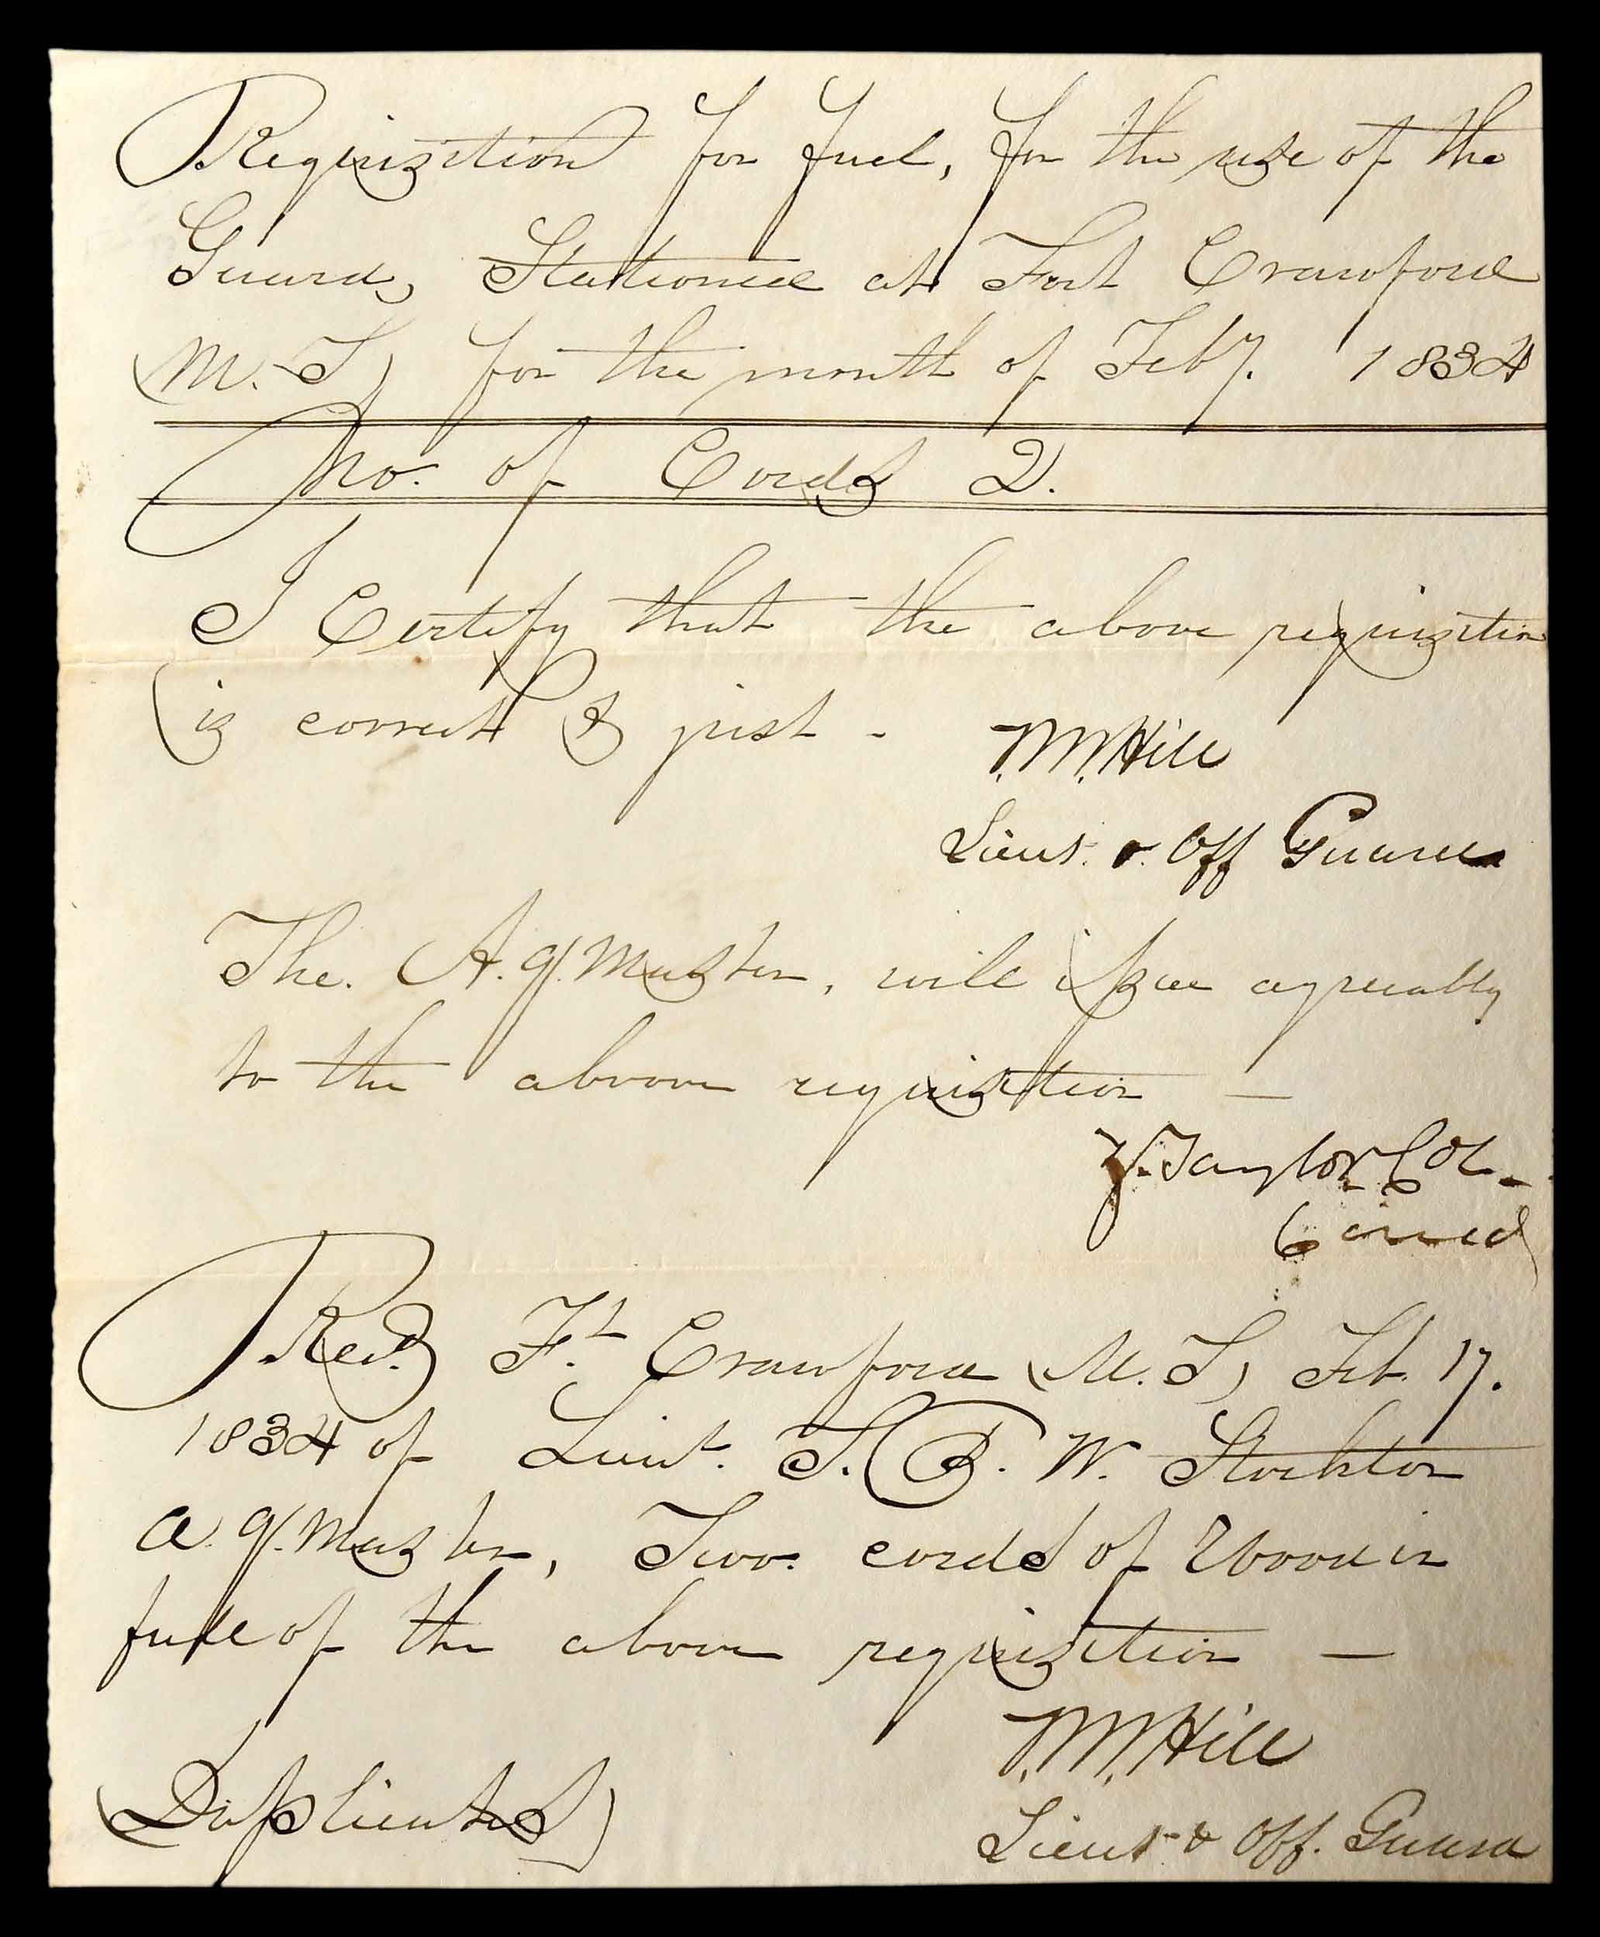 Requisition for fuel, for the use of the
Guard, Stationed at Fort Crawford
(M. T) for the month of Feby. 1834
No. of Cords 2.
I Certify that the above requisition
is correct & just -
T.M. Hill
Lieut. & Off Guard
The. A. Q. Master, will issue agreeably
to the above requisition —
Z. Taylor Col.
Comd
Recd. Ft. Crawford (M. T) Feb. 17.
1834 of Lieut. T. B. W. Stockton
A. Q. Master, Two cords of Wood in
full of the above requisition —
T.M. Hill
Lieut. & Off. Guard
(Duplicates)